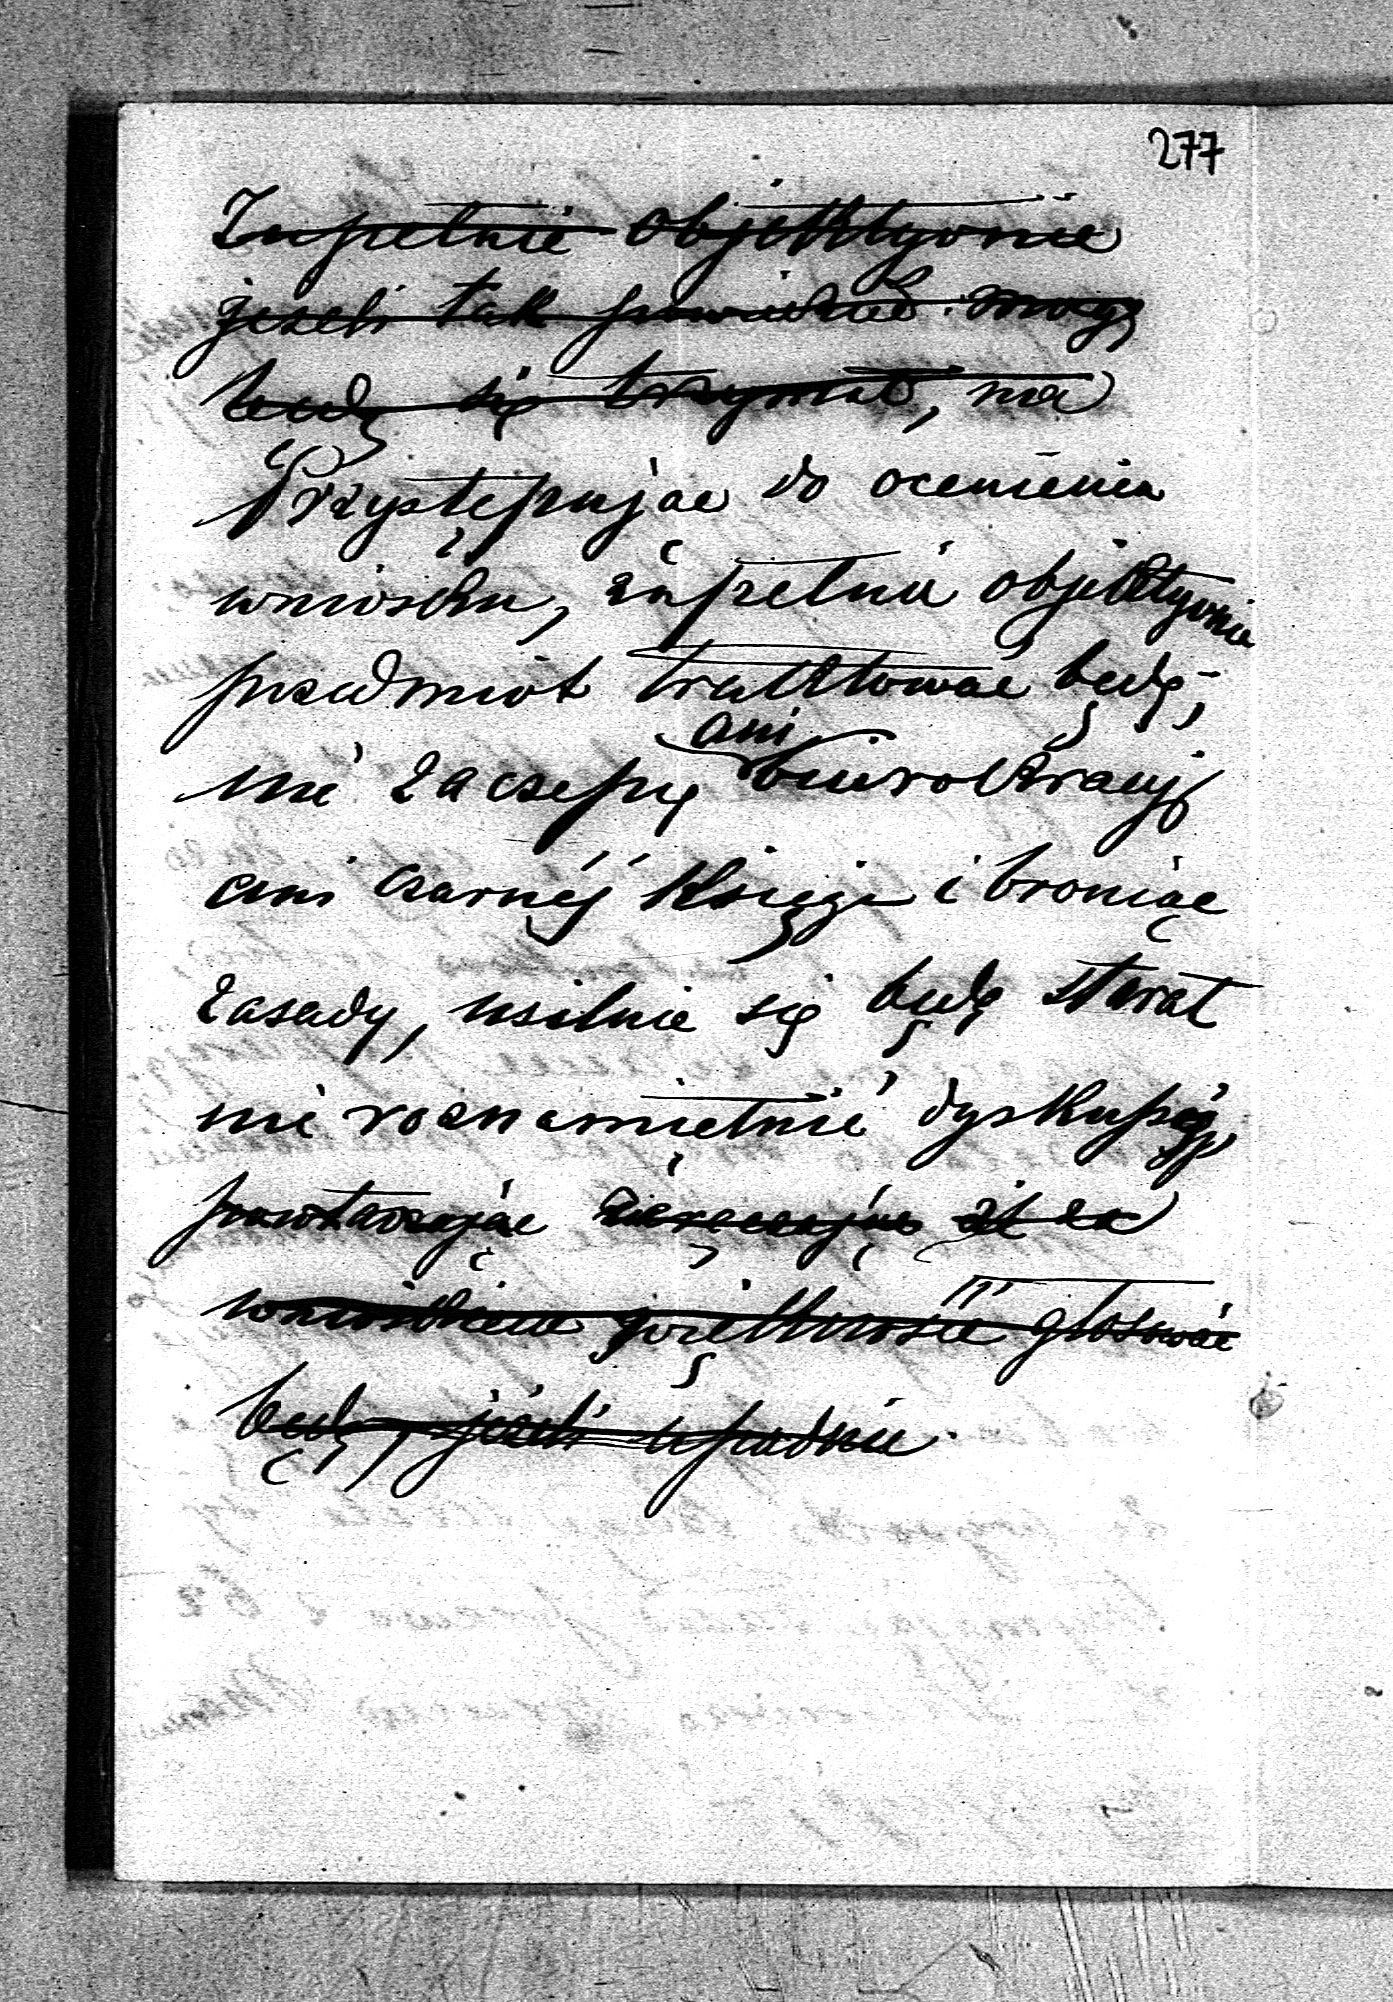 277
Zupełnie objektywnie
jeżeli tak powiedzieć mogę
będę się trzymał, na
Przystępując do ocenienia
wniosku, zupełnie objektywnie
przedmiot traktować będę,
nie zaczepię ani biurokracyj
ani czarnéj księgi i broniąc
zasady, usilnie się będę starał
nie roznamiętnić dyskusyą,
powtarzając że za
wnioskiem większości głosować
będę, jeżeli upadnie.